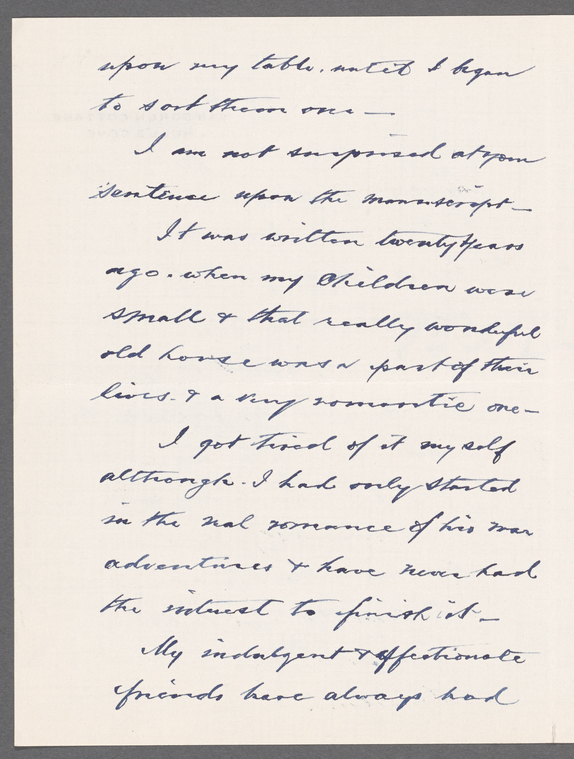 upon my table. until I began
to sort them one —
I am not surprised at your
sentence upon the manuscript —
It was written twenty years
ago. when my Children were
small & that really wonderful
old house was a part of their
lives. & a very romantic one —
I got tired of it myself
although. I had only started
in the real romance of his war
adventures & have never had
the interest to finish it —
My indulgent & affectionate
friends have always had